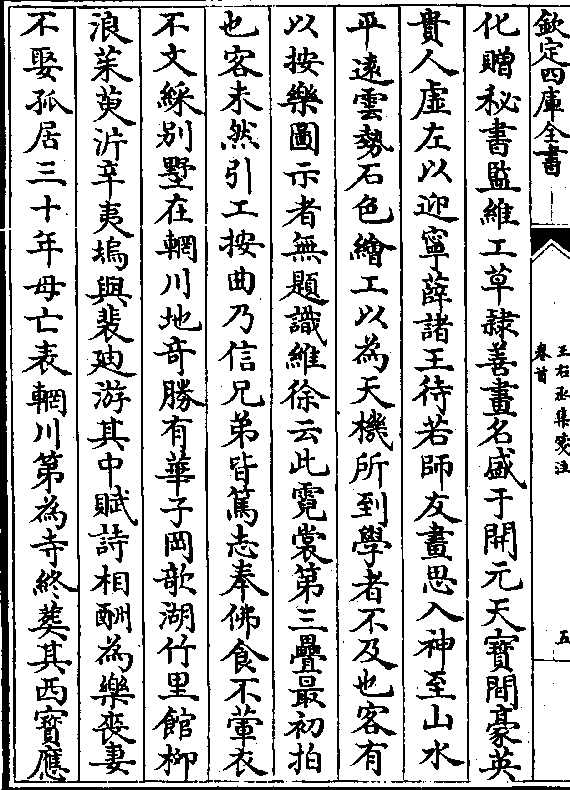 欽定四庫全書
王右丞集箋注
卷首
五
化贈秘書監維工草隸善畫名盛于開元天寳間豪英
貴人虛左以迎寧薛諸王待若師友畫思入神至山水
平遠雲勢石色繪工以為天機所到學者不及也客有
以按樂圖示者無題識維徐云此霓裳第三疊最初拍
也客未然引工按曲乃信兄弟皆篤志奉佛食不葷衣
不文綵别墅在輞川地竒勝有華子岡欹湖竹里館柳
浪茱萸沜辛夷塢與裴廸游其中賦詩相酬為樂喪妻
不娶孤居三十年母亡表輞川第為寺終葬其西寳應